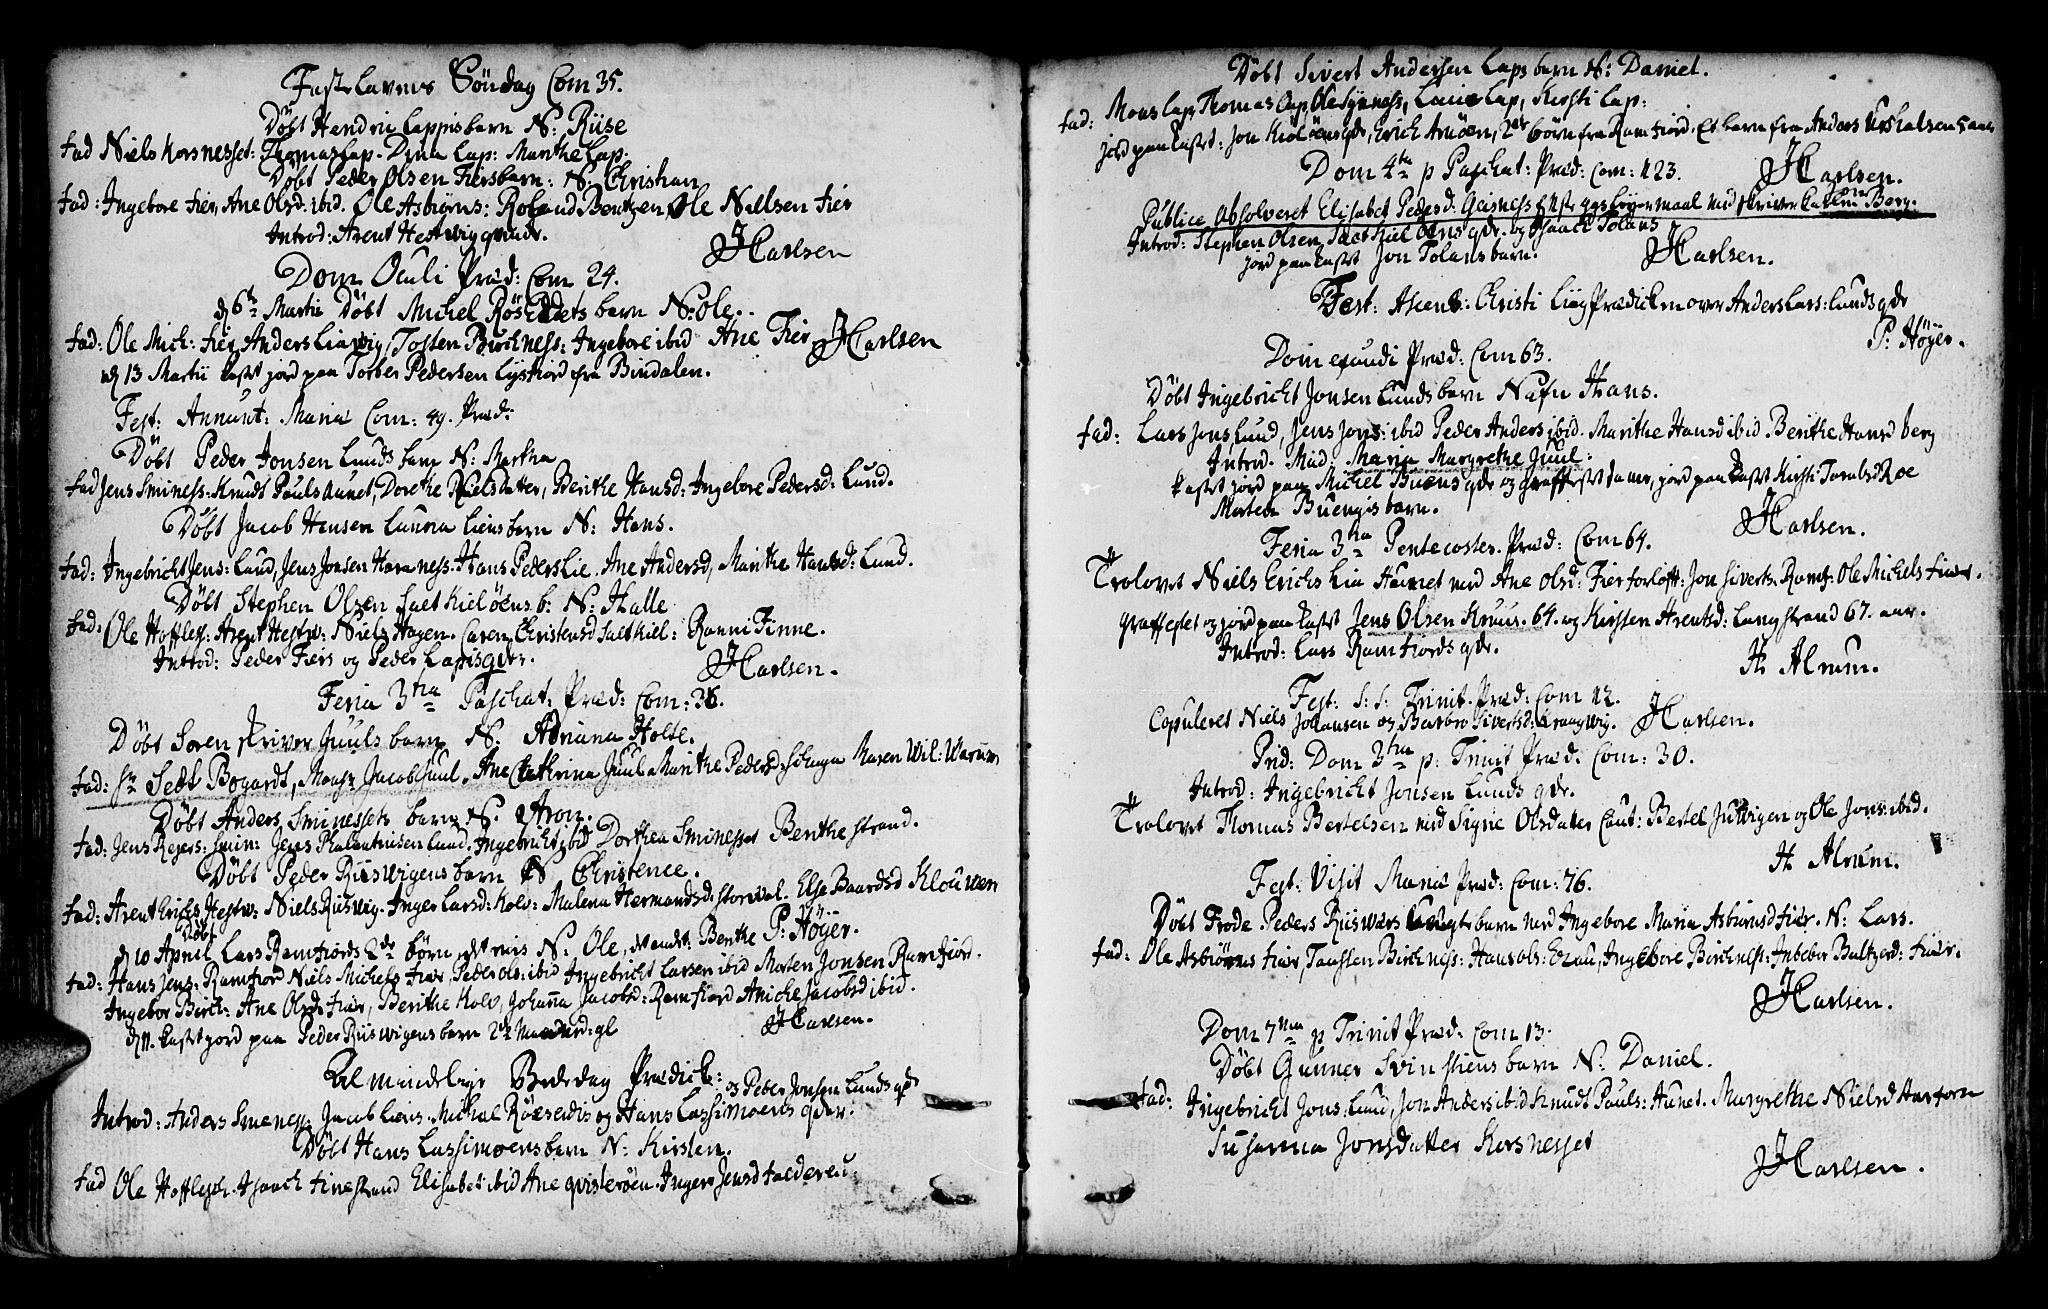 Fastelavens Söndag Com 35.
Döbt Hendric Lappis barn N: Riise
Fad Niels Korsnesset: Thomas Lap. Dina Lap: Marithe Lap.
Döbt Peder Olsen Fiers barn: N. Christian
Fad: Ingebor Fier, Ane Olsd: ibid. Ole Asbiörns: Roland Bentzen Ole Nielsen Fier
Introd: Arent Hestwiig qvinde.
JHCarlsen
Dom Oculi Præd: Com 24.
d 6te Martii Döbt Michel Rösedets barn N: Ole.
Fad: Ole Mich: Fier, Anders Liawig, Tosten Birchness: Ingebore ibid Ane Fier JHCarlsen
d 13 Martii kastet jord paa Torber Pedersen Lysfiord fra Bindalen.
Fest: Annunt: Mariæ Com: 49. Præd:
Döbt Peder Jonsen Lunds barn N: Martha
Fad Jens Sminess: Knudt Pauls Aunet, Dorthe Nielsdatter, Berithe Hansd: Ingebore Pedersd: Lund.
Döbt Jacob Hansen Liens barn N: Hans.
Fad: Ingebricht Jens: Lund, Jens Jonsen Horsness. Hans Peders Lie. Ane Andersd, Marithe Hansd: Lund.
Döbt Stephen Olsen Saltkielöens b: N: Halle
Fad: Ole Hoffles: Arent Hestw: Niels Hagen. Caren Christensd Saltkiel: Ranni Finne.
Introd: Peder Fiers og Peder Lapis qdr.
JHCarlsen.
Feria 3tia Paschat: Præd: Com: 36.
Döbt Soren skriver Juuls barn N: Adriana Holte.
Fad: Sr Sedt Bogardt, Monsr Jacob Juul, Ane Cathrina Juul, Marithe Pedersd: Maren Wil:
Döbt Anders Sminessets barn N. Aron.
Fad: Jens Rejers: Smin: Jens Lund. Ingebricht ibid Dorthea Sminesset Berithe Strand.
Döbt Peder Riiswigens barn N Christence.
Fad: Arent Erichs Hestw: Niels Riiswig. Inger Larsd: Kolv: Malena Hermansd: Storval. Else Baardsd Klouwen
P: Höÿer.
d 10 April Döbt Lars Ramfiords 2de börn, det enis N: Ole, det andet: Berithe
Fad: Hans Jens: Ramfiord Niels Michels Fier, Peder Ols: ibid Ingebricht Larsen ibid Morten Jonsen Ramfiord.
Ingebor Birch: Ane Olsd: Fier, Berithe Kolv, Johanna Jacobsd: Ramfiord Aniche Jacobsd ibid.
d 11. kastet jord paa Peder Riiswigens barn 2de Maaneder: gl
JHCarlsen.
Almindelige Bededag Prædick:
Introd: Anders Sminess: Jacob Liens. Michael Rösedets og Hans Lassimoens qder. og Peder Jonsen Lunds qd
Döbt Hans Lassimoens barn N: Kirsten.
Fad Ole Hofflesch. Isaach Finestrand Elisabet ibid Ane Qvisteröen. Inger Jensd Falderew:
Döbt Sivert Andersen Laps barn N: Daniel.
Fad: Mons Lap, Thomas Lap, Ole Synness, Lap, Kirsti Lap:
jord paa kastet: Jon Kiölöens qde, Erich Arnöen, 2de börn fra Ramfiord. Et barn fra Anders
Dom 4ta p Paschat: Præd: Com: 123. JHCarlsen.
Publice Absolveret Elisabet Pedersd: Leyermaal med skriver karlen Berg.
Introd: Stephen Olsen Saltkielöens qdr. og Isaach Tolans
jord paa kastet Jon Tolans barn.
JHCarlsen.
Fest: Ascens: Christi Liig Prædicken over Anders Lars: Lunds qde
P: Höÿer.
Dom exaudi Præd: Com 63.
Döbt Ingebricht Jonsen Lunds barn Nafn Hans.
Fad: Lars Jons Lund, Jens Jons: ibid Peder Anders ibid. Marithe Hansd ibid Berithe Hansd berg
Introd. Mad. Maria Margrethe Juul:
kastet jord paa Michel Buens qde og graffestet jord paa kastet Kirsti
Morten Buengis barn.
JHCarlsen.
Feria 3tia Pentecostes. Præd: Com 64.
Trolovet Niels Erichs Lia Haunet med Ane Olsd: Fier forloft: Jon Siverts. Ramf: Ole Michels Fier.
Graffestet og jord paa kastet Jens Olsen Kruus. 64. og Kirsten Arentsd: Langstrand 67. aar.
Introd: Lars Ramfiords qdr.
H Alrum.
Fest: S: S: Trinit. Præd: Com 12.
Copuleret Niels Johansen og Barbro Sivertsd: Kraagwig. JHCarlsen.
Prid: Dom 3tia p: Trinit Præd: Com: 30.
Introd: Ingebricht Jonsen Lunds qdr.
Trolovet Thomas Bertelsen med Signe Olsdatter Caut: Bertel og Ole Jons: ibid.
H Alrum.
Fest: Visit Mariæ Præd: Com: 76.
Döbt Frode Peders Riiswærs barn med Ingebore Maria Asbiörnsd Fier. N: Lars.
Fad: Ole Asbiörns Fier, Taasten Birchness: Hans Ols: Ingebore Birchnest: Ingebor Baltzersd: Fier.
JHCarlsen.
Dom 7ma p Trinit Præd: Com 13.
Döbt Gunner Svinstiens barn N: Daniel.
Fad: Ingebricht Jons: Lund, Jon Anders ibid Knudt Pauls: Aunet. Margrethe Nielsd
Susanna Jonsdatter Korsnesset
JHCarlsen.